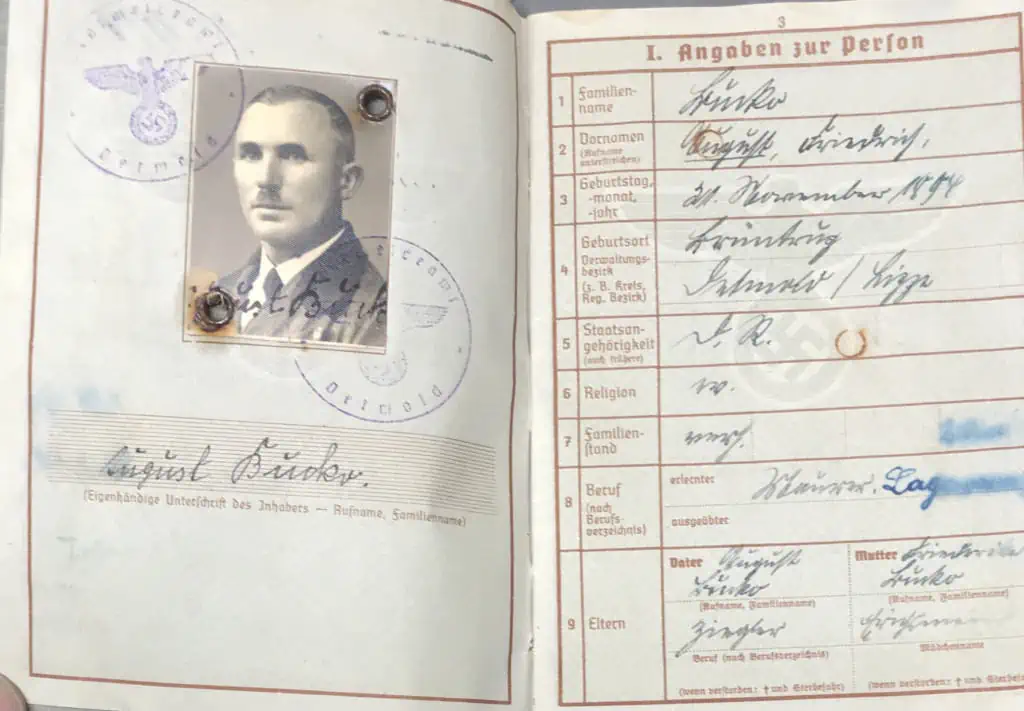 Detmold
August
Detmold
August Bucko.
(Eigenhändige Unterschrift des Inhabers — Rufname, Familienname)
3
I. Angaben zur Person
1 Familien-
name
Bucko
2 Vornamen
(Rufname
unterstreichen)
August, Friedrich.
3 Geburtstag,
-monat,
-jahr
21. November 1894
4 Geburtsort
Verwaltungs-
bezirk
(z. B. Kreis,
Reg. Bezirk)
Brüntrup
Detmold / Lippe
5 Staatsan-
gehörigkeit
(auch frühere)
D. R.
6 Religion
ev.
7 Familien-
stand
verh.
8 Beruf
(nach
Berufs-
verzeichnis)
erlernter
Maurer. Lag
ausgeübter
9 Eltern
Vater August
Bucko
(Rufname, Familienname)
Ziegler
Beruf (nach Berufsverzeichnis)
(wenn verstorben: † und Sterbejahr)
Mutter Friederike
Bucko
(Rufname, Familienname)
Mädchenname
(wenn verstorben: † und Sterbejahr)